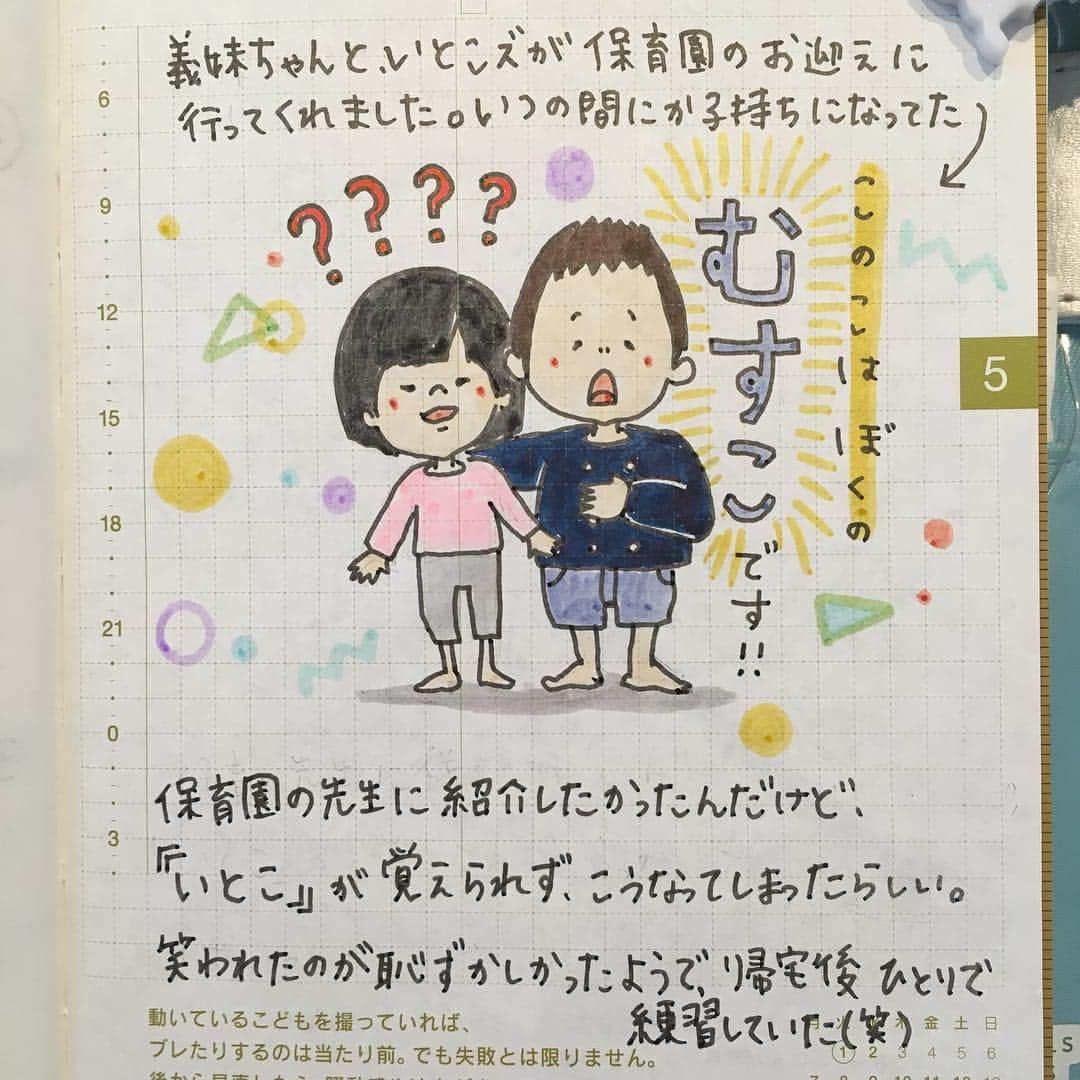 義妹ちゃんと、いとこズが保育園のお迎えに
行ってくれました。いつの間にか子持ちになってた
????
このこはぼくの
むすこです!!
6
9
12
15
18
21
0
3
5
保育園の先生に紹介したかったんだけど、
『いとこ』が覚えられず、こうなってしまったらしい。
笑われたのが恥ずかしかったようで、帰宅後ひとりで
練習していた(笑)
動いているこどもを撮っていれば、
ブレたりするのは当たり前。でも失敗とは限りません。
月 火 木 金 土 日
1 2 3 4 5 6